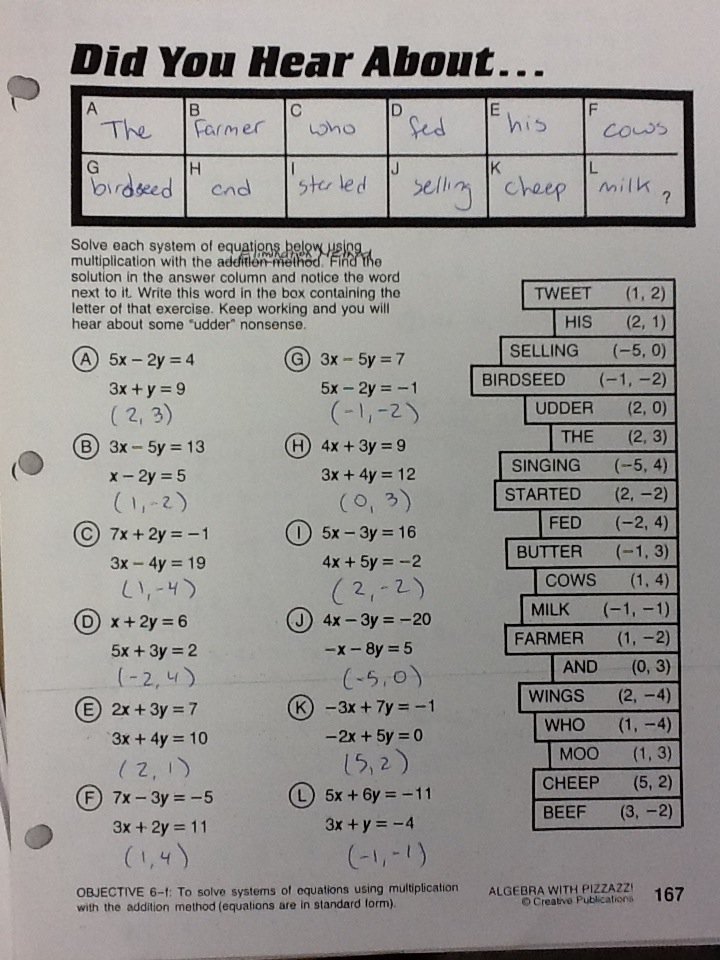 Did You Hear About...
A B C D E F
The Farmer who fed his cows
G H I J K L
birdseed and started selling cheep milk ?
Solve each system of equations below using
multiplication with the addition method. Find the
Elimination Method
solution in the answer column and notice the word
next to it. Write this word in the box containing the
letter of that exercise. Keep working and you will
hear about some "udder" nonsense.
A 5x − 2y = 4
3x + y = 9
(2, 3)
B 3x − 5y = 13
x − 2y = 5
(1, -2)
C 7x + 2y = −1
3x − 4y = 19
(1, -4)
D x + 2y = 6
5x + 3y = 2
(-2, 4)
E 2x + 3y = 7
3x + 4y = 10
(2, 1)
F 7x − 3y = −5
3x + 2y = 11
(1, 4)
G 3x − 5y = 7
5x − 2y = −1
(-1, -2)
H 4x + 3y = 9
3x + 4y = 12
(0, 3)
I 5x − 3y = 16
4x + 5y = −2
(2, -2)
J 4x − 3y = −20
−x − 8y = 5
(-5, 0)
K −3x + 7y = −1
−2x + 5y = 0
(5, 2)
L 5x + 6y = −11
3x + y = −4
(-1, -1)
TWEET (1, 2)
HIS (2, 1)
SELLING (−5, 0)
BIRDSEED (−1, −2)
UDDER (2, 0)
THE (2, 3)
SINGING (−5, 4)
STARTED (2, −2)
FED (−2, 4)
BUTTER (−1, 3)
COWS (1, 4)
MILK (−1, −1)
FARMER (1, −2)
AND (0, 3)
WINGS (2, −4)
WHO (1, −4)
MOO (1, 3)
CHEEP (5, 2)
BEEF (3, −2)
OBJECTIVE 6–f: To solve systems of equations using multiplication
with the addition method (equations are in standard form).
ALGEBRA WITH PIZZAZZ!
© Creative Publications
167